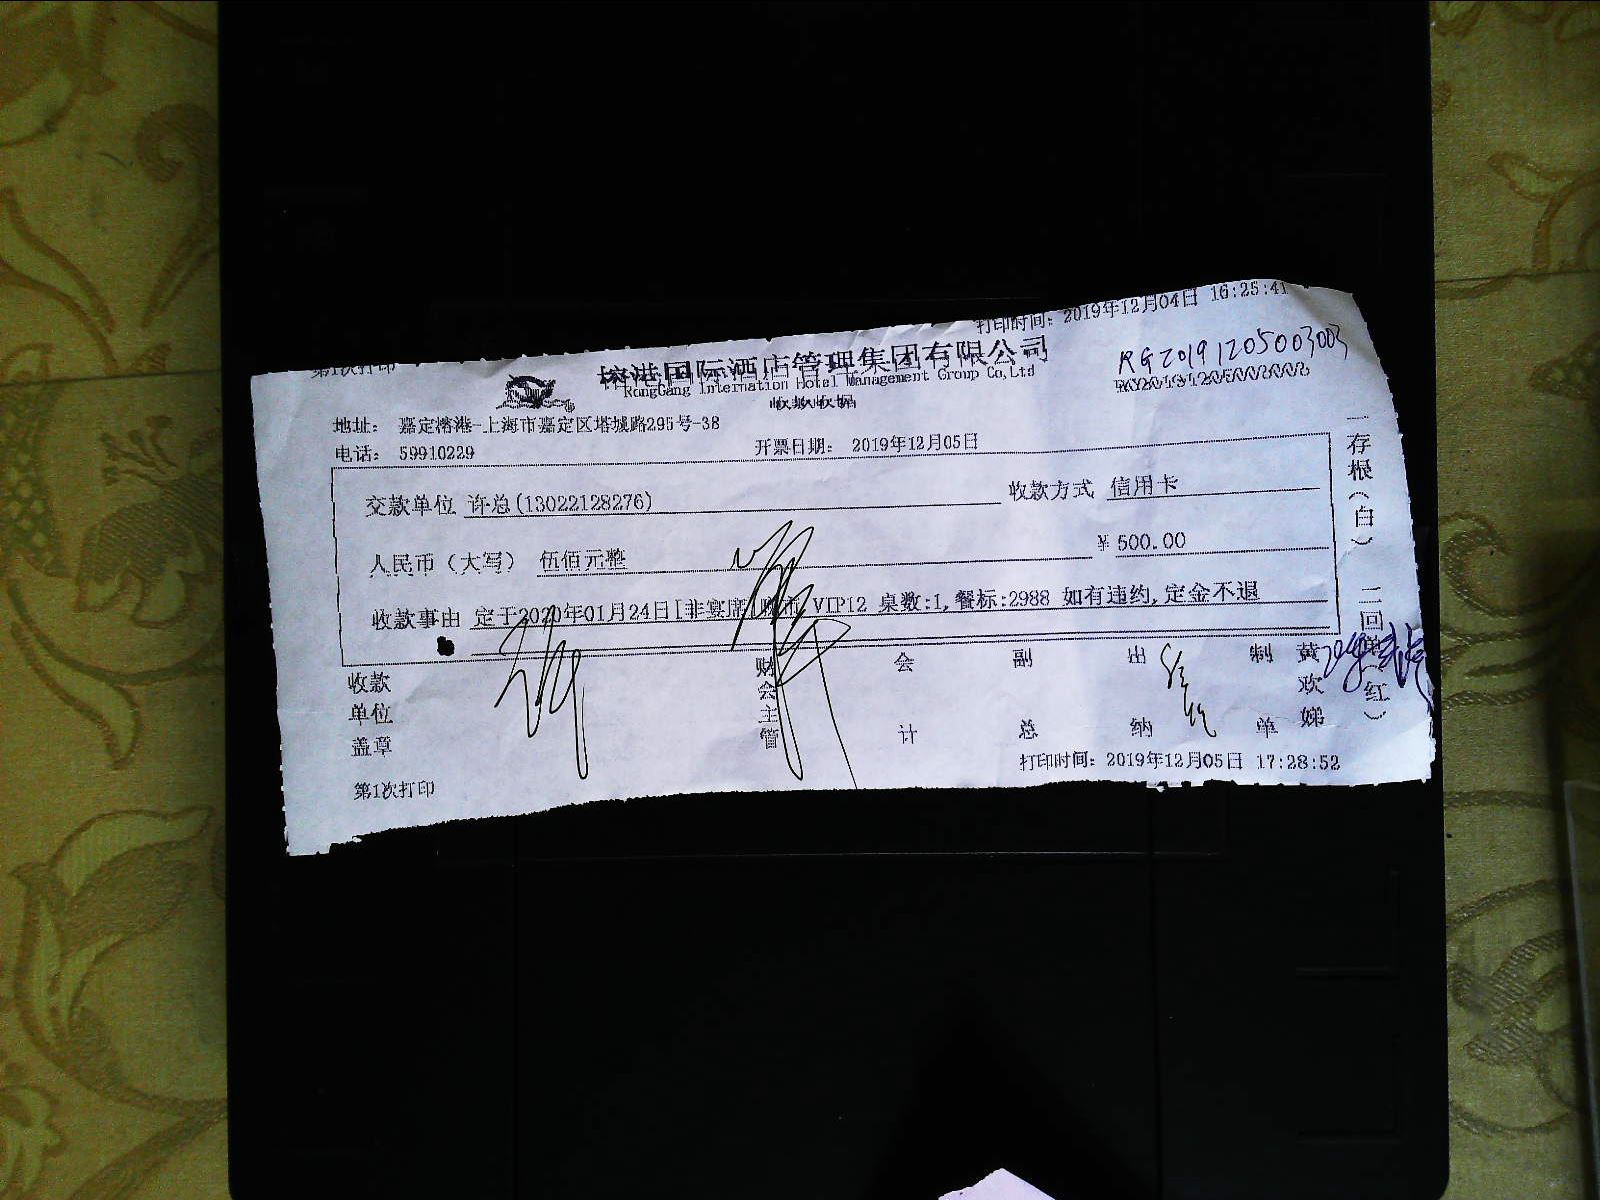 打印时间：2019年12月04日 16:25:41
第1次打印
榕港国际酒店管理集团有限公司
RongGang Internation Hotel Management Group Co,Ltd
收款收据
RG20191205003003
地址： 嘉定榕港-上海市嘉定区塔城路295号-38
电话： 59910229 开票日期： 2019年12月05日
交款单位 许总(13022128276) 收款方式 信用卡
人民币（大写） 伍佰元整 ¥ 500.00
收款事由 定于2020年01月24日[非宴席]晚市 VIP12 桌数:1,餐标:2988 如有违约,定金不退
收款单位盖章 财会主管 会计 副总 出纳 制单 黄欢娣
一存根（白） 二回单（红）
打印时间：2019年12月05日 17:28:52
第1次打印